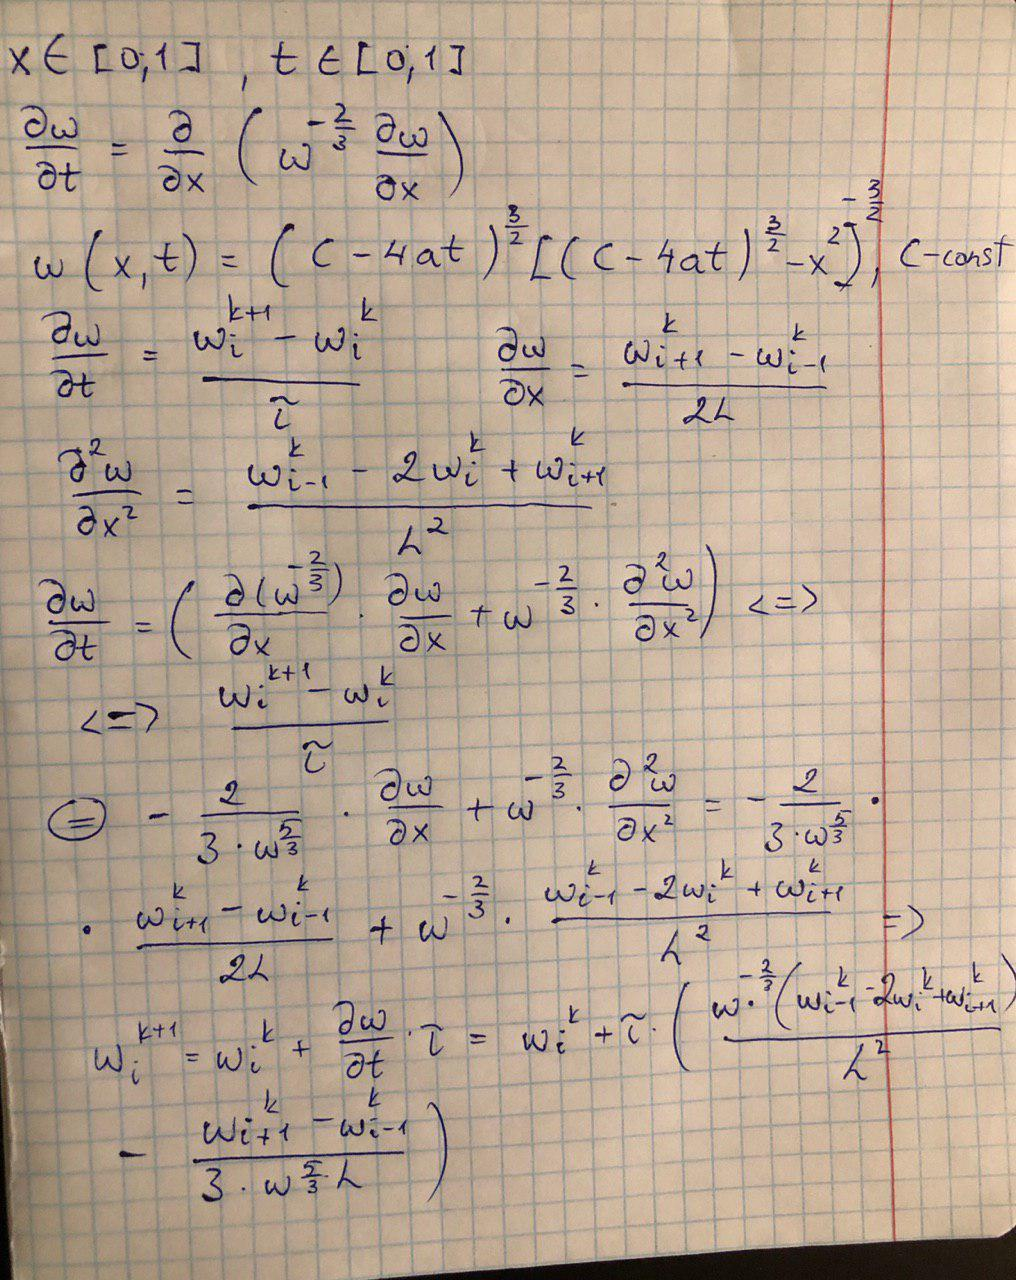 x ∈ [0;1] , t ∈ [0,1]
∂ω/∂t = ∂/∂x ( ω^{-2/3} ∂ω/∂x )
ω(x,t) = (C - 4at)^{3/2} [(C - 4at)^{3/2} - x^2]^{-3/2}, C-const
∂ω/∂t = (ω_i^{k+1} - ω_i^k)/τ ∂ω/∂x = (ω_{i+1}^k - ω_{i-1}^k)/2h
∂^2ω/∂x^2 = (ω_{i-1}^k - 2ω_i^k + ω_{i+1}^k)/h^2
∂ω/∂t = ( ∂(ω^{-2/3})/∂x · ∂ω/∂x + ω^{-2/3} · ∂^2ω/∂x^2 ) <=>
<=> (ω_i^{k+1} - ω_i^k)/τ
(=) - 2/(3·ω^{5/3}) · ∂ω/∂x + ω^{-2/3} · ∂^2ω/∂x^2 = - 2/(3·ω^{5/3}) ·
· (ω_{i+1}^k - ω_{i-1}^k)/2h + ω^{-2/3} · (ω_{i-1}^k - 2ω_i^k + ω_{i+1}^k)/h^2 =>
ω_i^{k+1} = ω_i^k + ∂ω/∂t · τ = ω_i^k + τ · ( ω^{-2/3}·(ω_{i-1}^k - 2ω_i^k + ω_{i+1}^k)/h^2
- (ω_{i+1}^k - ω_{i-1}^k)/(3·ω^{5/3}·h) )